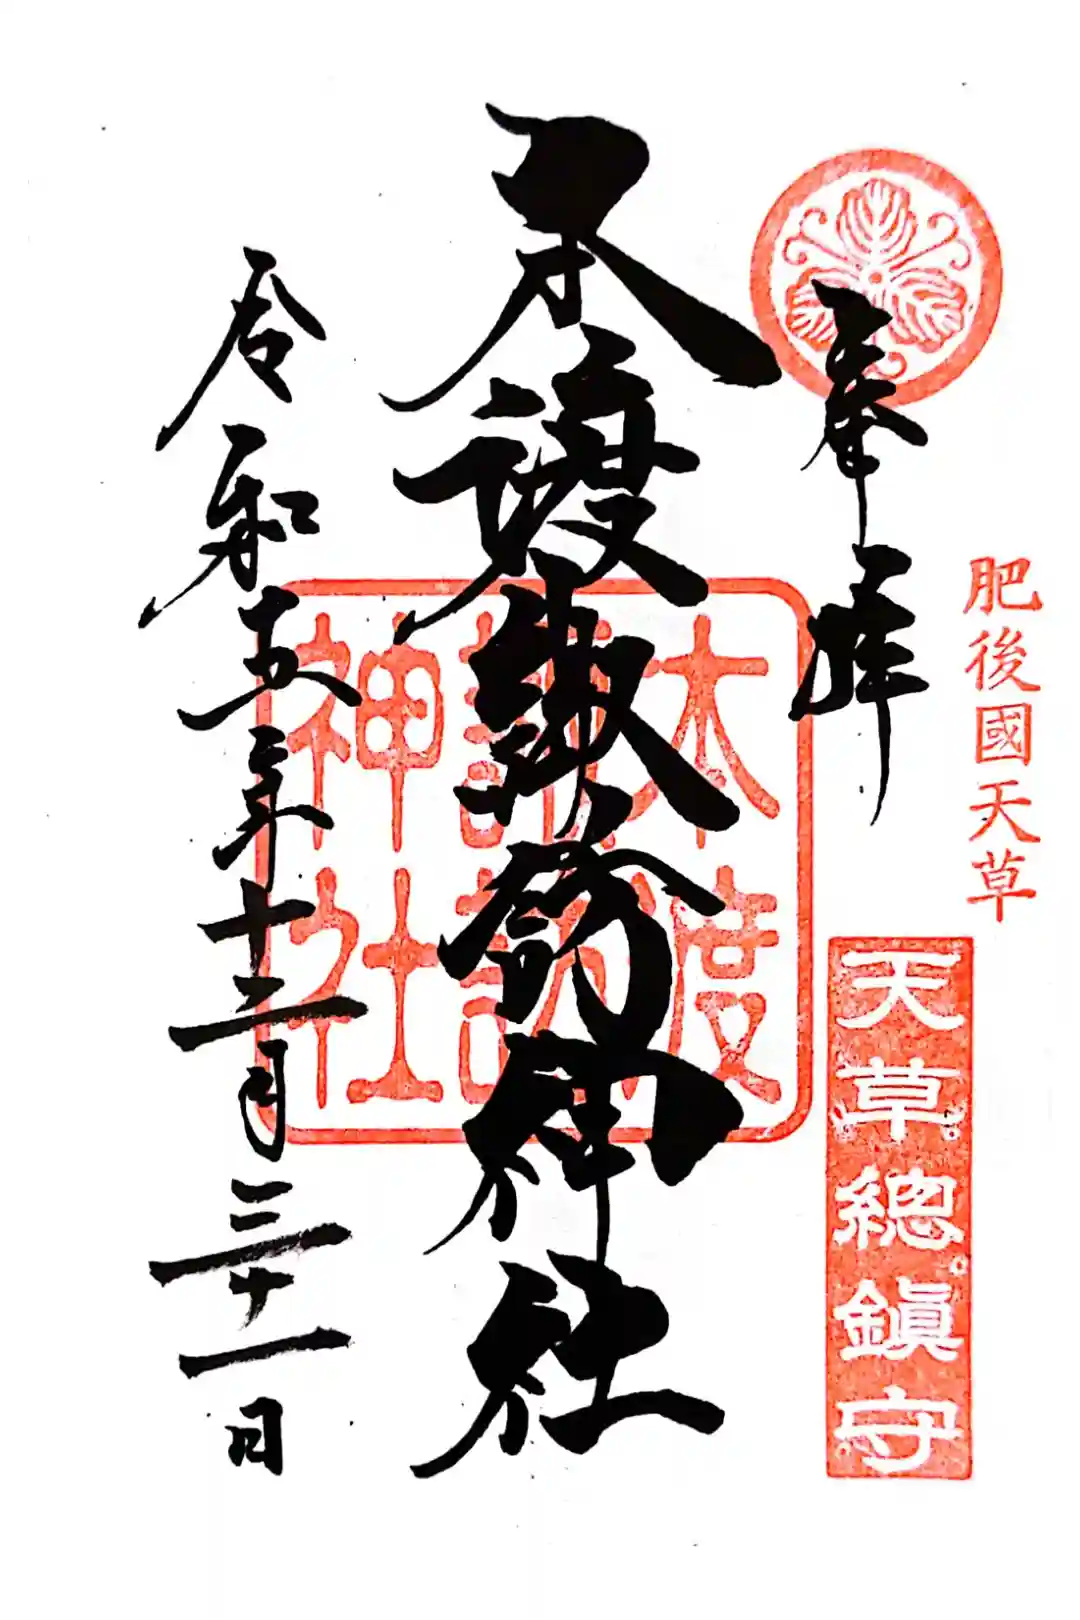 肥後國天草
天草總鎭守
奉拝
本渡諏訪神社
本渡
諏訪
神社
令和五年十二月三十一日